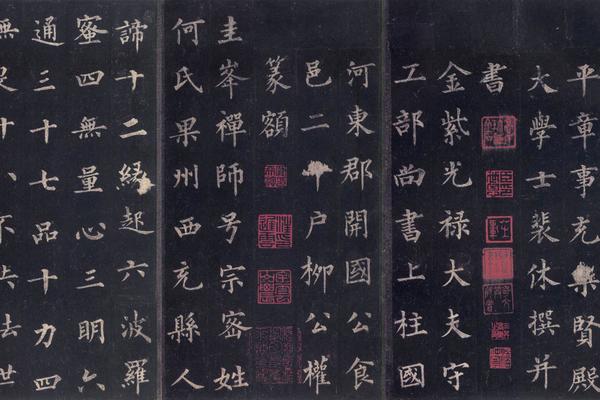 平章事充集賢殿
大學士裴休撰并
書
金紫光禄大夫守
工部尚書上柱國
河東郡開國公食
邑二千户柳公權
篆額
圭峯禪師号宗密姓
何氏果州西充縣人
諦十二縁起六波羅
蜜四無量心三明六
通三十七品十力四
無畏十八不共法世